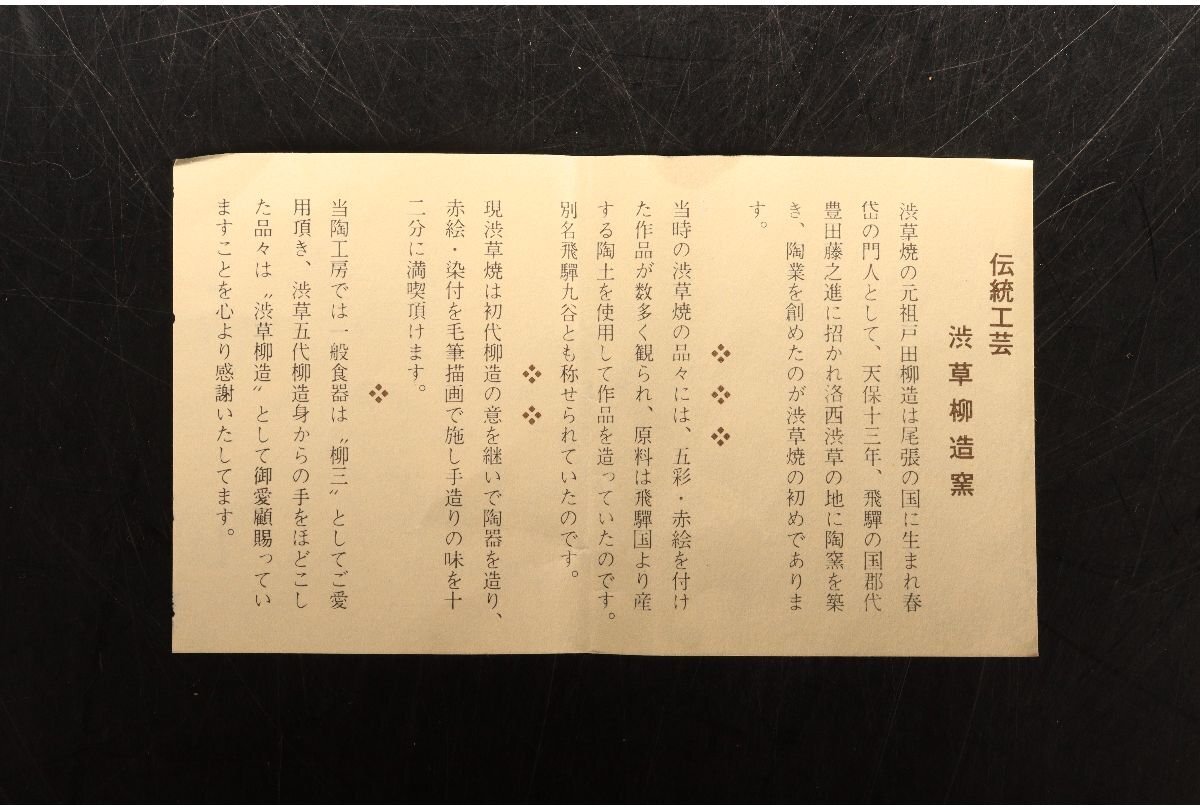 伝統工芸
渋草柳造窯
渋草焼の元祖戸田柳造は尾張の国に生まれ春
岱の門人として、天保十三年、飛驒の国郡代
豊田藤之進に招かれ洛西渋草の地に陶窯を築
き、陶業を創めたのが渋草焼の初めでありま
す。
当時の渋草焼の品々には、五彩・赤絵を付け
た作品が数多く観られ、原料は飛驒国より産
する陶土を使用して作品を造っていたのです。
別名飛驒九谷とも称せられていたのです。
現渋草焼は初代柳造の意を継いで陶器を造り、
赤絵・染付を毛筆描画で施し手造りの味を十
二分に満喫頂けます。
当陶工房では一般食器は〝柳三〟としてご愛
用頂き、渋草五代柳造身からの手をほどこし
た品々は〝渋草柳造〟として御愛顧賜ってい
ますことを心より感謝いたしてます。